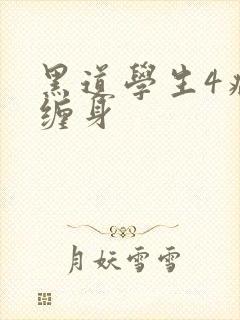 黑道學生4
缠身
月妖雪雪